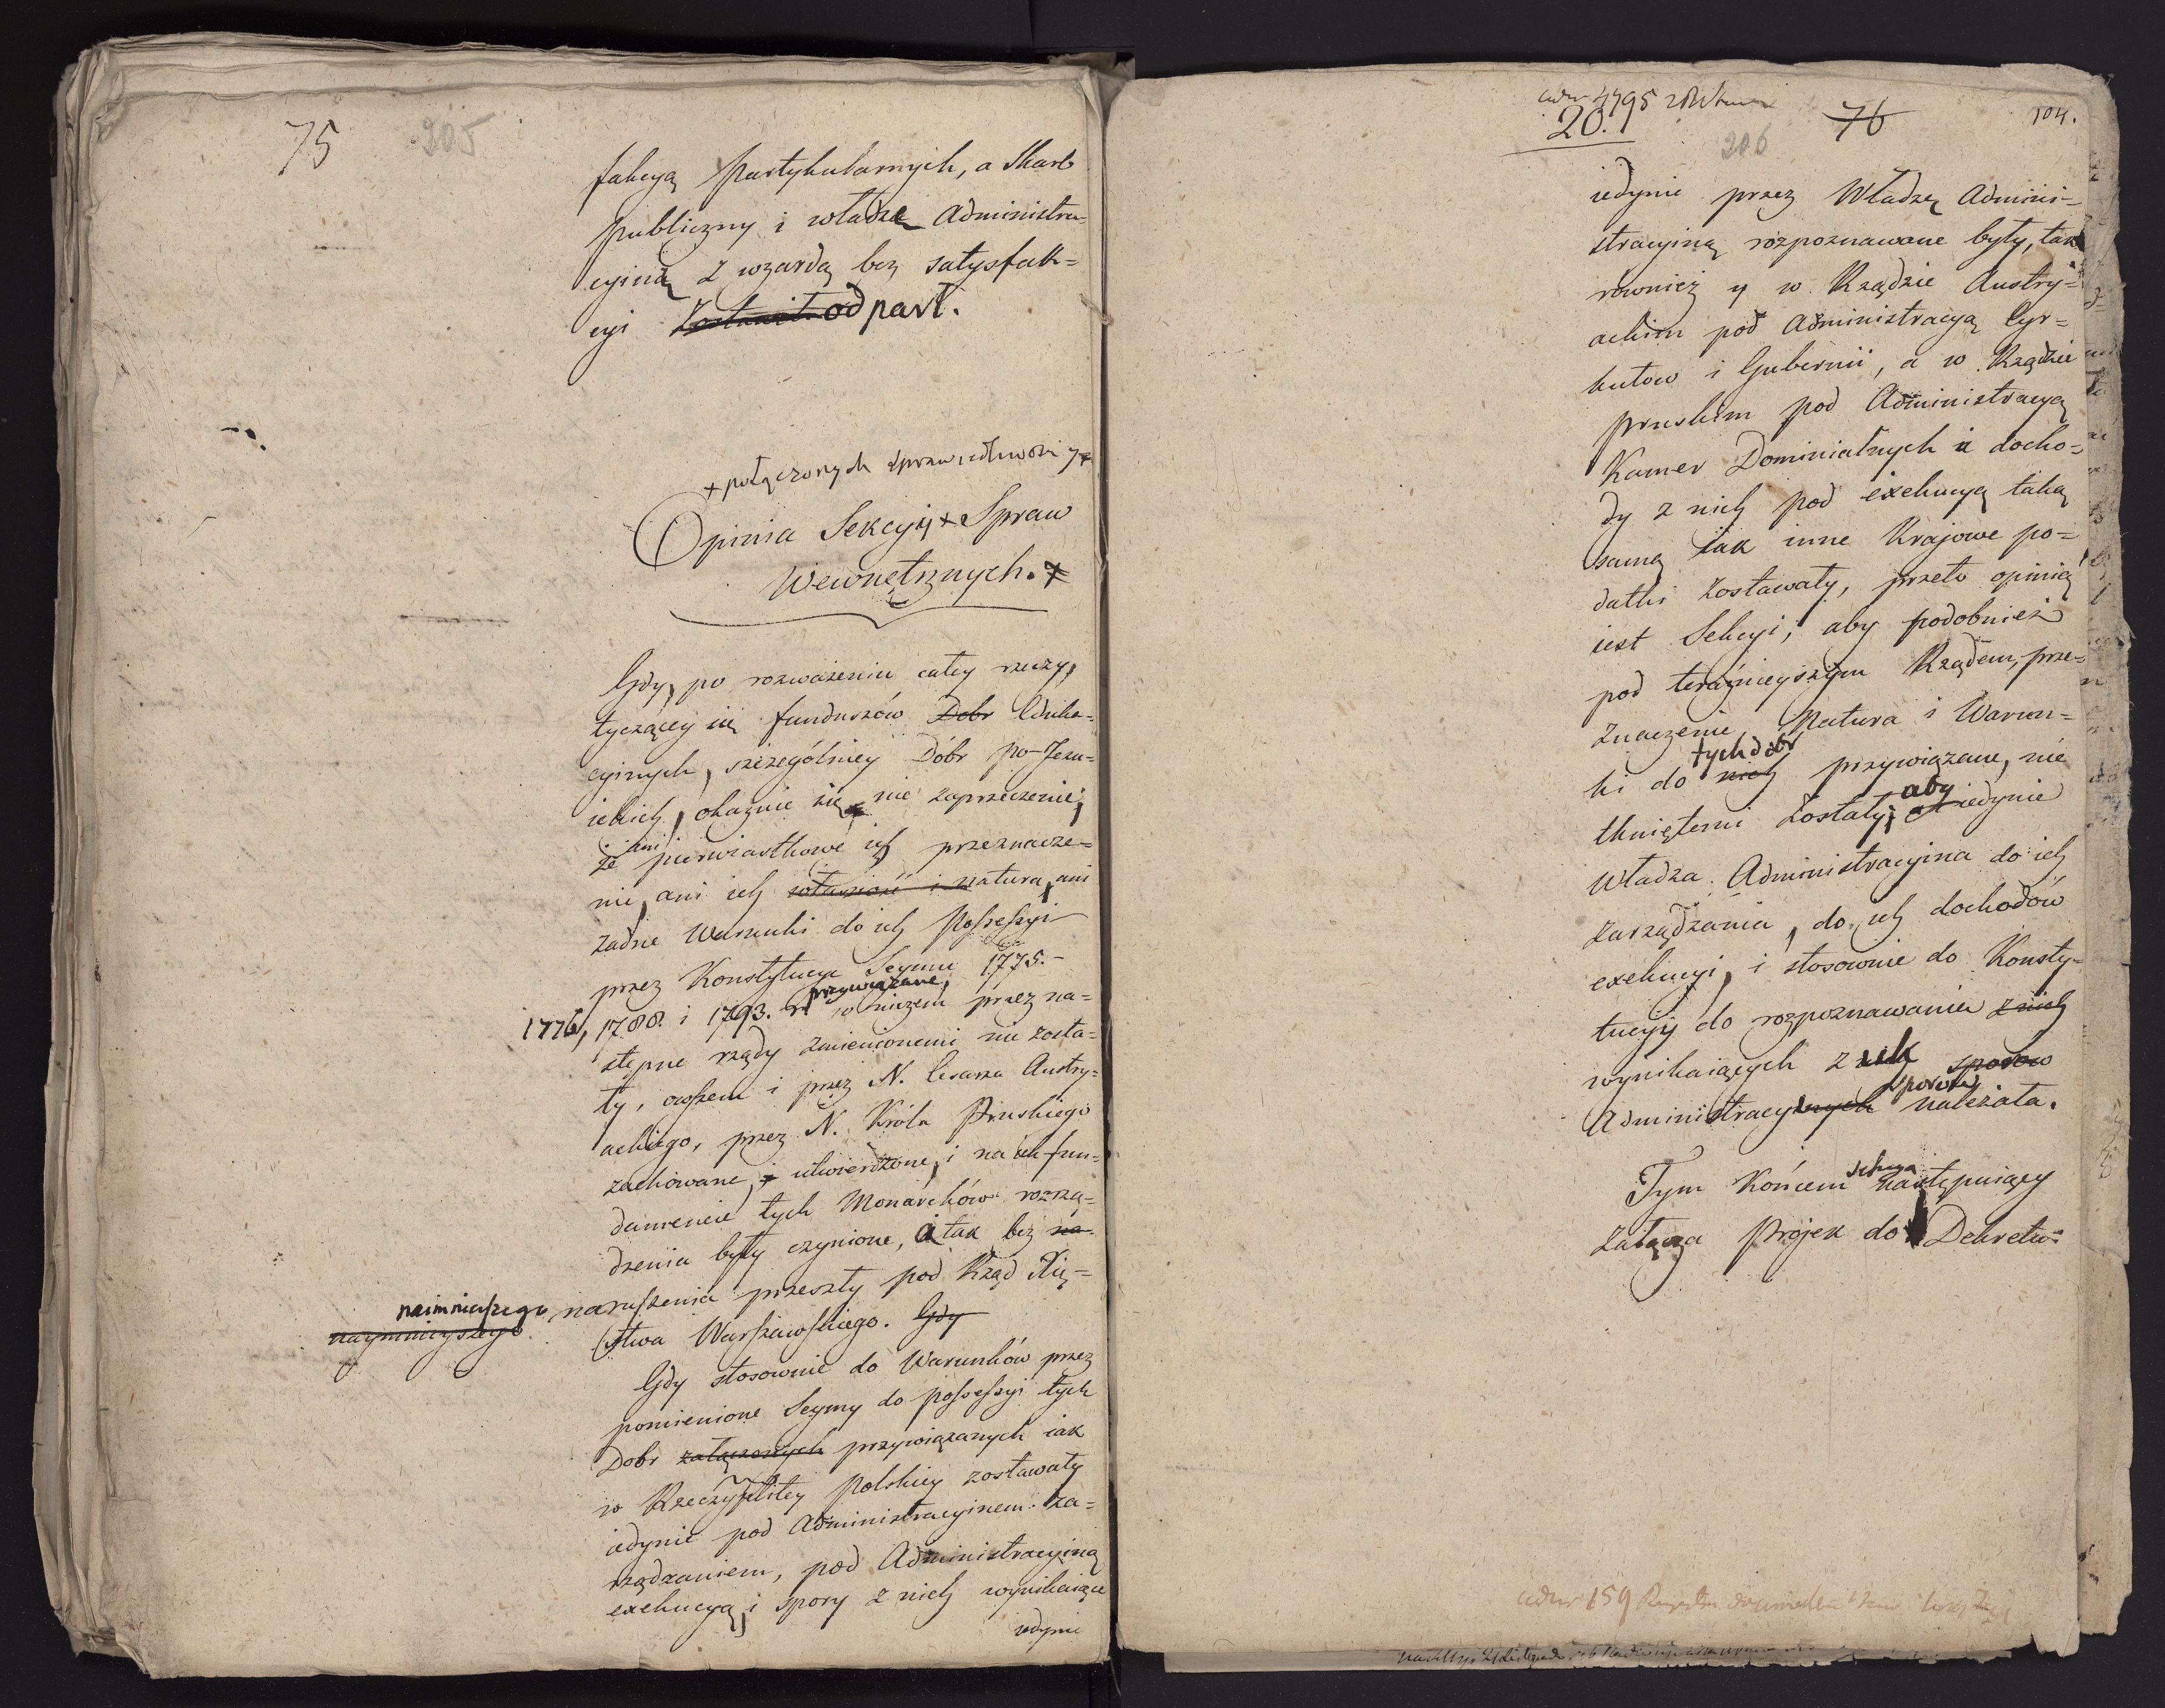 75 205
fakcyą Partykularnych, a Skarb
publiczny i władzę Administra-
cyiną z wzgardą bez satysfak=
cyi odparł.
+ połączonych sprawiedliwości y
Opinia Sekcyy + Spraw
Wewnętrznych. +
Gdy, po rozważeniu całey rzeczy,
tyczącey się funduszów Dobr Eduka=
cyinych, szczególniey Dóbr po-Jezu=
ickich, okazuie się nie zaprzeczenie,
że ani pierwiastkowe ich przeznacze=
nie, ani ich własność i natura, ani
żadne Warunki do ich Possessyi
przez Konstytucye Seymu 1775.-
1776, 1788. i 1793. r. przywiązane, w niczem przez na=
stępne rządy zmienionemi nie zosta=
ły, owszem i przez N. Cesarza Austry=
ackiego, przez N. Króla Pruskiego
zachowane, i utwierdzone, i na ich fun=
damencie tych Monarchów rozrzą=
dzenia były czynione, a tak bez na-
naimnieyszego naymnieyszego naruszenia przeszły pod Rząd Xię=
stwa Warszawskiego. Gdy
Gdy stosownie do Warunków przez
pomienione Seymy do possessyi tych
Dobr załączonych przywiązanych iak
w Rzeczyplitey Polskiey zostawały
iedynie pod Administracyinem za=
rządzaniem, pod Administracyiną
exekucyą, i spory z nich wynikaiące
iedynie
20. 76 104.
206
iedynie przez Władzę Admini=
stracyiną rozpoznawane były, tak
również y w Rządzie Austry=
ackim pod Administracyą Cyr=
kułow i Gubernii, a w Rządzie
pruskim pod Administracyą
Kamer Dominialnych a docho=
dy z nich pod exekucyą taką
samą iak inne Krajowe po=
datki zostawały, przeto opinią
iest Sekcyi, aby podobnież
pod teraźnieyszym Rządem, prze=
znaczenie, Natura i Warun=
ki do nich tych dóbr przywiązane, nie
tkniętemi zostały, aby iedynie
Władza Administracyina do ich
zarządzania, do ich dochodów
exekucyi, i stosownie do Konsty=
tucyy do rozpoznawania z nich
wynikaiących z nich sporow
Administracyinych sporow należała.
Tym Końcem Sekcya następuiący
załącza Projek do Dekretu: